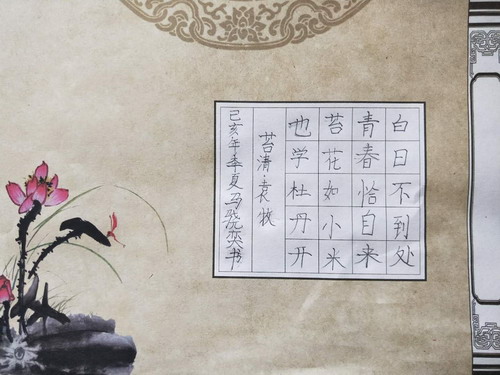 白日不到处
青春恰自来
苔花如小米
也学杜丹开
苔 清·袁牧
己亥年季夏马骁奕书